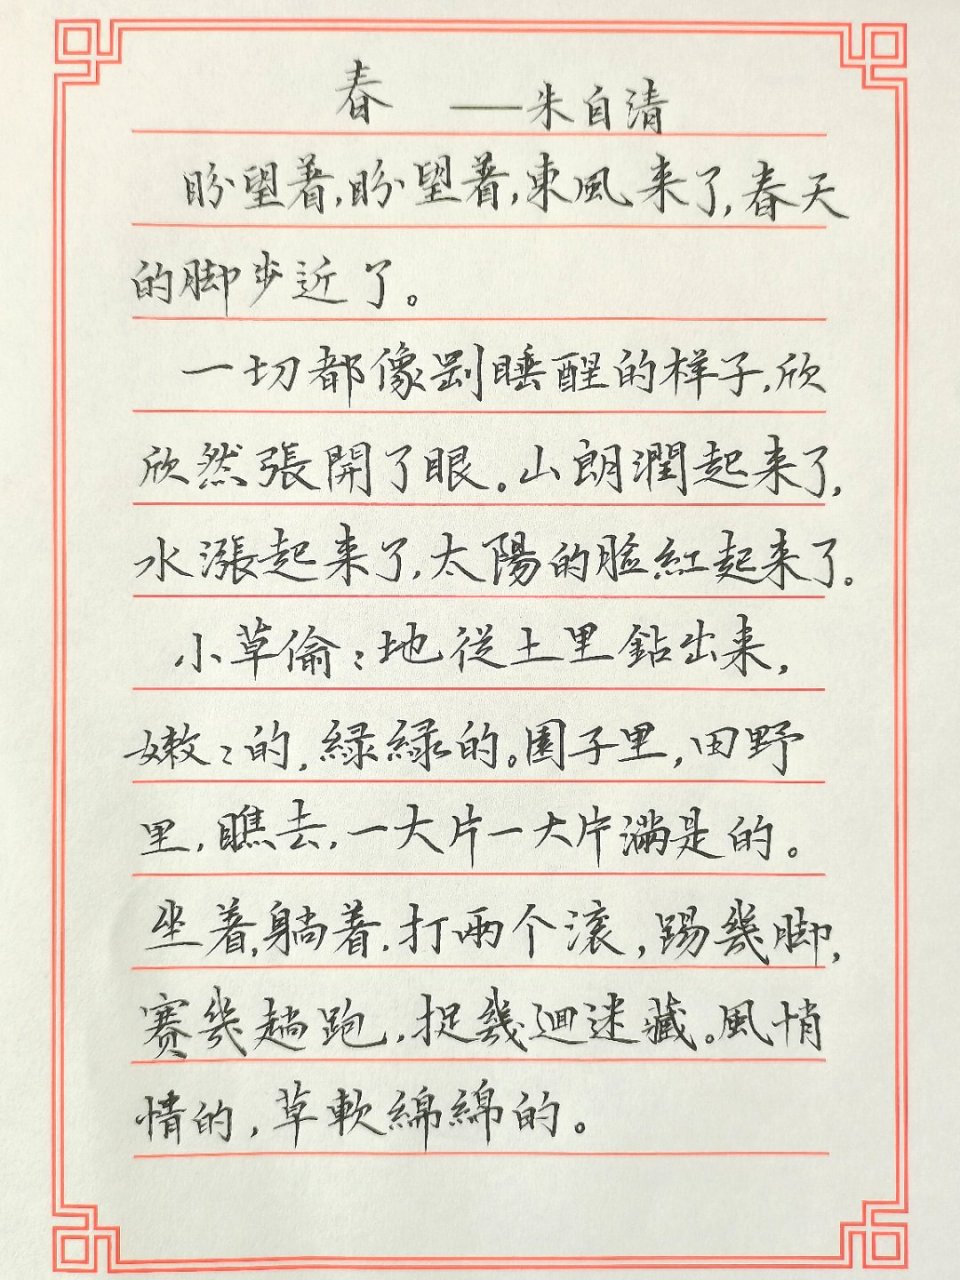 春 ——朱自清
盼望着,盼望着,東風来了,春天
的脚步近了。
一切都像剛睡醒的样子,欣
欣然張開了眼。山朗潤起来了,
水漲起来了,太陽的脸紅起来了。
小草偷:地從土里鉆出来,
嫩:的,緑緑的。園子里,田野
里,瞧去,一大片一大片满是的。
坐着,躺着.打兩个滚,踢幾脚,
赛幾趟跑,捉幾迴迷藏。風悄
情的,草軟綿綿的。